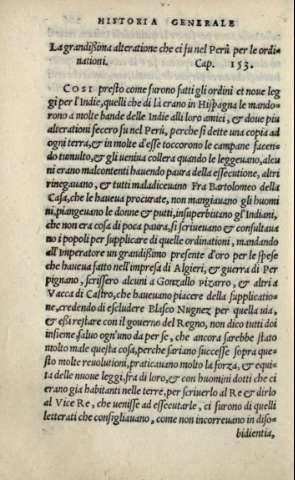 HISTORIA GENERALE
La grandißima alteratione che ci fu nel Perù per le ordi-
nationi. Cap. 153.
COSI presto come furono fatti gli ordini et noue leg
gi per l'Indie, quelli che di lì erano in Hispagna le mando-
rono a molte bande delle Indie alli loro amici, & doue piu
alterationi fecero fu nel Perù, perche si dette una copia ad
ogni terra, & in molte d'esse toccorono le campane facen-
do tumulto, & gli ueniua collera quando le leggeuano, alcu
ni erano malcontenti hauendo paura della essecutione, altri
rinegauano, & tutti maladiceuano Fra Bartolomeo della
Casa, che le haueua procurate, non mangiauano gli huomi
ni, piangeuano le donne & putti, insuperbitano gl'Indiani,
che non era cosa di poca paura, si scriueuano & consultaua
no i popoli per supplicare di quelle ordinationi, mandando
all'Imperatore un grandißimo presente d'oro per le spese
che haueua fatto nell'impresa di Algieri, & guerra di Per
pignano, scrissero alcuni a Gonzallo pizarro, & altri a
Vacca di Castro, che haueuano piacere della supplicatio-
ne, credendo di escludere Blasco Nugnez per quella uia,
& eßi restare con il gouerno del Regno, non dico tutti doi
insieme, saluo ogn'uno da per se, che ancora sarebbe stato
molto male questa cosa, perche sariano successe sopra que-
sto molte reuolutioni, praticauano molto la forza, & equi-
ta delle nuoue leggi, fra di loro, & con huomini dotti che ci
erano gia habitanti nelle terre, per scriuerlo al Re & dirlo
al Vice Re, che uenisse ad essecutarle, ci furono di quelli
letterati che consigliauano, come non incorreuano in diso-
bidientia,